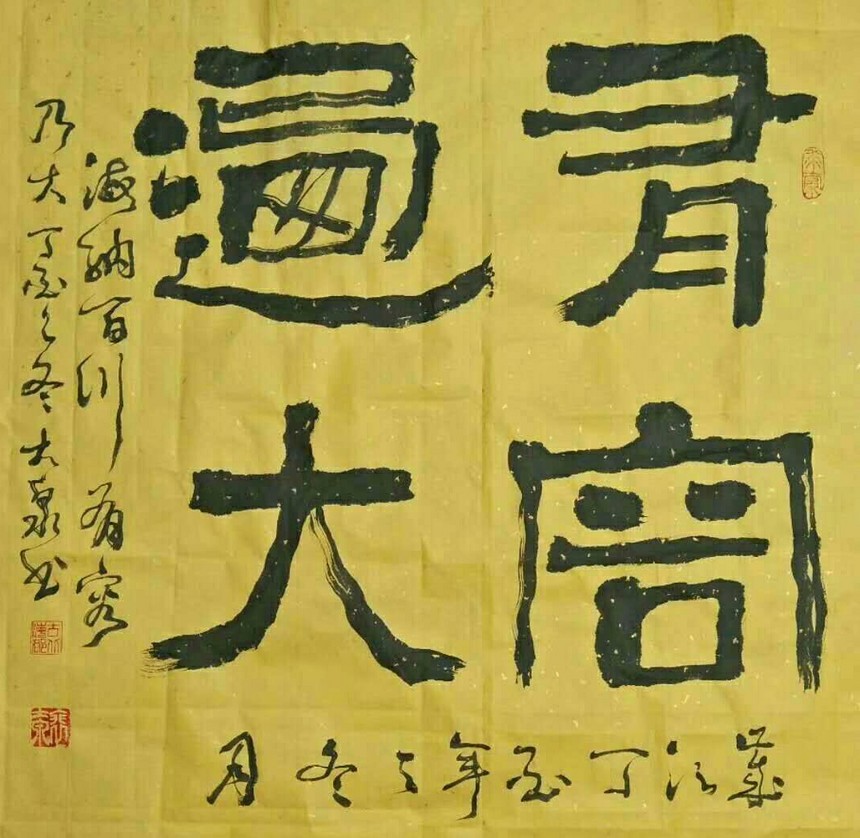 有容
迺大
海纳百川有容
乃大丁酉之冬大泉书
岁次丁酉年之冬月